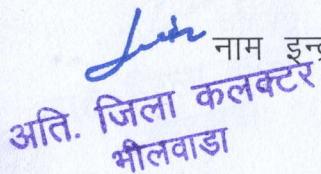 नाम
अति. जिला कलक्टर
भीलवाडा